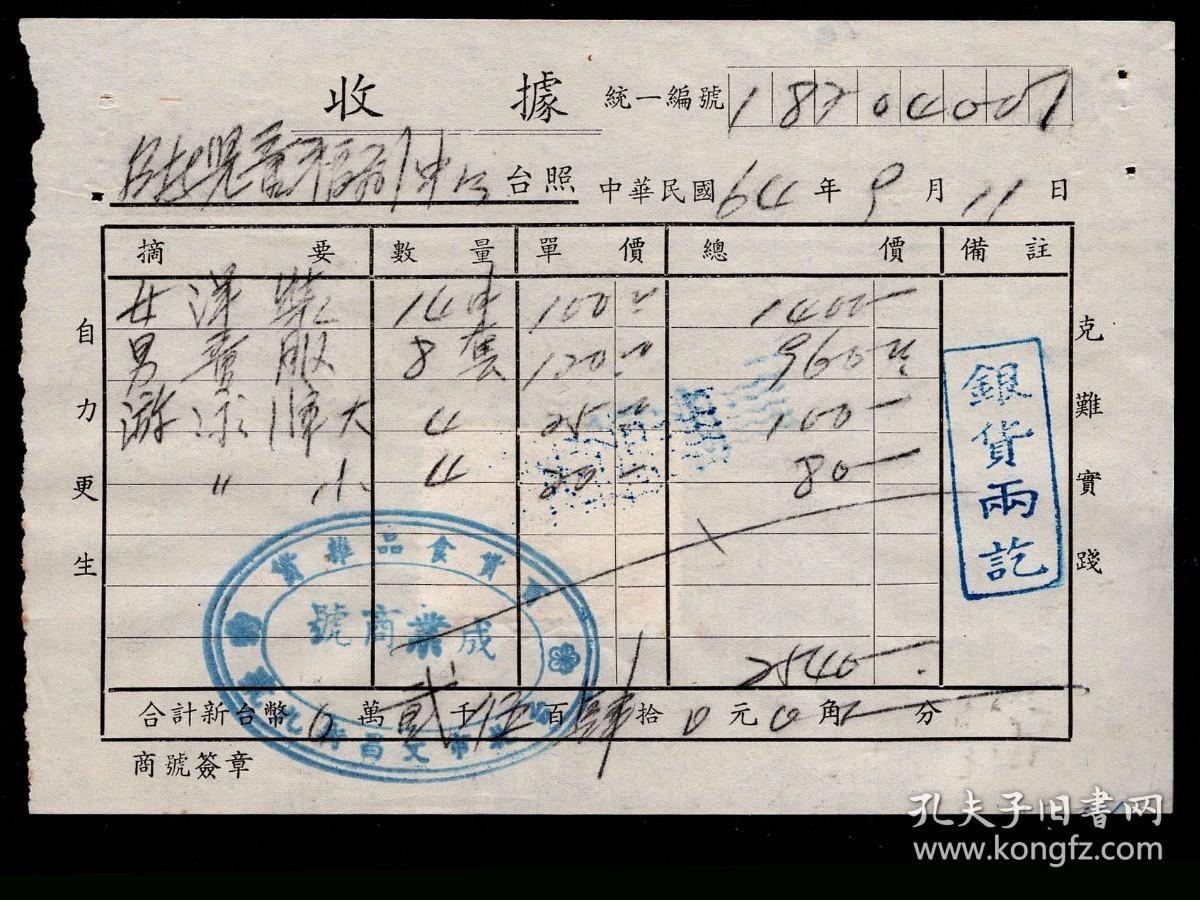 收據 統一編號 18704007
台照 中華民國64年9月11日
摘要 數量 單價 總價 備註
女洋裝 14 100 1400
男套服 8套 120 960
游泳褲大 4 25 100
〃 小 4 20 80
2540
合計新台幣0萬貳千伍百肆拾0元0角 分
商號簽章
自力更生
克難實踐
銀貨兩訖
貨雜品食貨
號商業成
孔夫子旧书网
www.kongfz.com